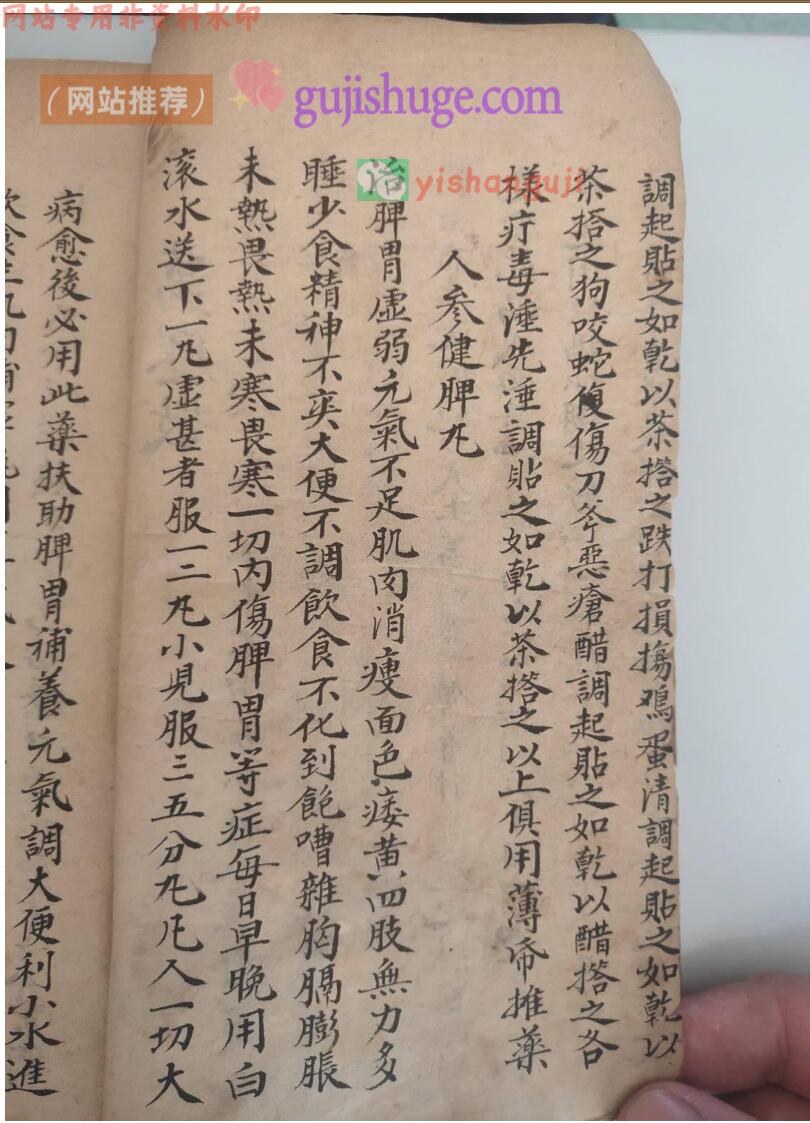 网站专用非资料水印
(网站推荐)
gujishuge.com
yishanguji
調起貼之如乾以茶搽之跌打損傷鸡蛋清調起貼之如乾以
茶搽之狗咬蛇傷刀斧惡瘡醋調起貼之如乾以醋搽之各
樣疔毒唾先唾調貼之如乾以茶搽之以上俱用薄帋摊藥
人參健脾丸
治脾胃虛弱元氣不足肌肉消瘦面色痿黄四肢無力多
睡少食精神不爽大便不調飲食不化到飽嘈雜胸膈膨脹
未熱畏熱未寒畏寒一切内傷脾胃等症每日早晚用白
滚水送下一丸虛甚者服一二丸小児服三五分丸凡人一切大
病愈後必用此藥扶助脾胃補養元氣調大便利小水進
飲食